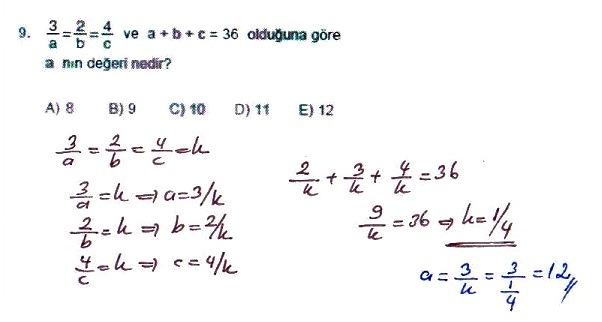 9. 3/a = 2/b = 4/c ve a + b + c = 36 olduğuna göre
a nın değeri nedir?
A) 8 B) 9 C) 10 D) 11 E) 12
3/a = 2/b = 4/c = k
3/a = k ⇒ a = 3/k
2/b = k ⇒ b = 2/k
4/c = k ⇒ c = 4/k
2/k + 3/k + 4/k = 36
9/k = 36 ⇒ k = 1/4
a = 3/k = 3/(1/4) = 12//